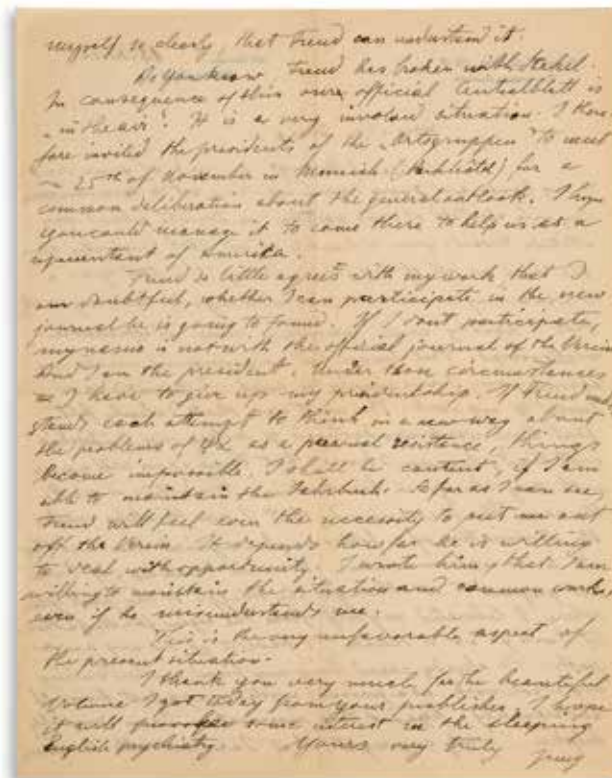 myself so clearly, that Freud can understand it.
Do you know Freud has broken with Stekel.
In consequence of this our official Centralblatt is
"in the air". It is a very involved situation. I there-
fore invited the presidents of the "Ortsgruppen" to meet
25th of November in Munich (Parkhotel) for a
common deliberation about the general outlook. I hope
you could manage it to come there to help us as a
representant of America.
Freud so little agrees with my work, that I
am doubtful, whether I can participate in the new
journal he is going to found. If I dont participate,
my name is not with the official journal of the Verein
And I am the president. Under those circumstances
I have to give up my presidentship. If Freud und-
stands each attempt to think in a new way about
the problems of ΨΑ as a personal resistence, things
become impossible. I shall be content, if I am
able to maintain the Jahrbuch. As far as I can see,
Freud will feel even the necessity to put me out
off the Verein. It depends how far he is willing
to deal with opportunity. I wrote him, that I am
willing to maintain the situation and common work,
even if he misunderstands me.
This is the very unfavorable aspect of
the present situation.
I thank you very much for the beautiful
volume I got today from your publisher. I hope
it will provoke some interest in the sleeping
English psychiatry. Yours very truly
Jung